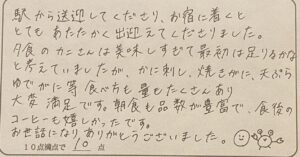 駅から送迎してくださり、お宿に着くと
とてもあたたかく出迎えてくださりました。
夕食のカニさんは美味しすぎて最初は足りるかな
と考えていましたが、かに刺し、焼きがに、天ぷら
ゆでがに等 食べ方も量もたくさんあり
大変満足です。朝食も品数が豊富で、食後の
コーヒーも嬉しかったです。
お世話になりありがとうございました。
10点満点で 10 点